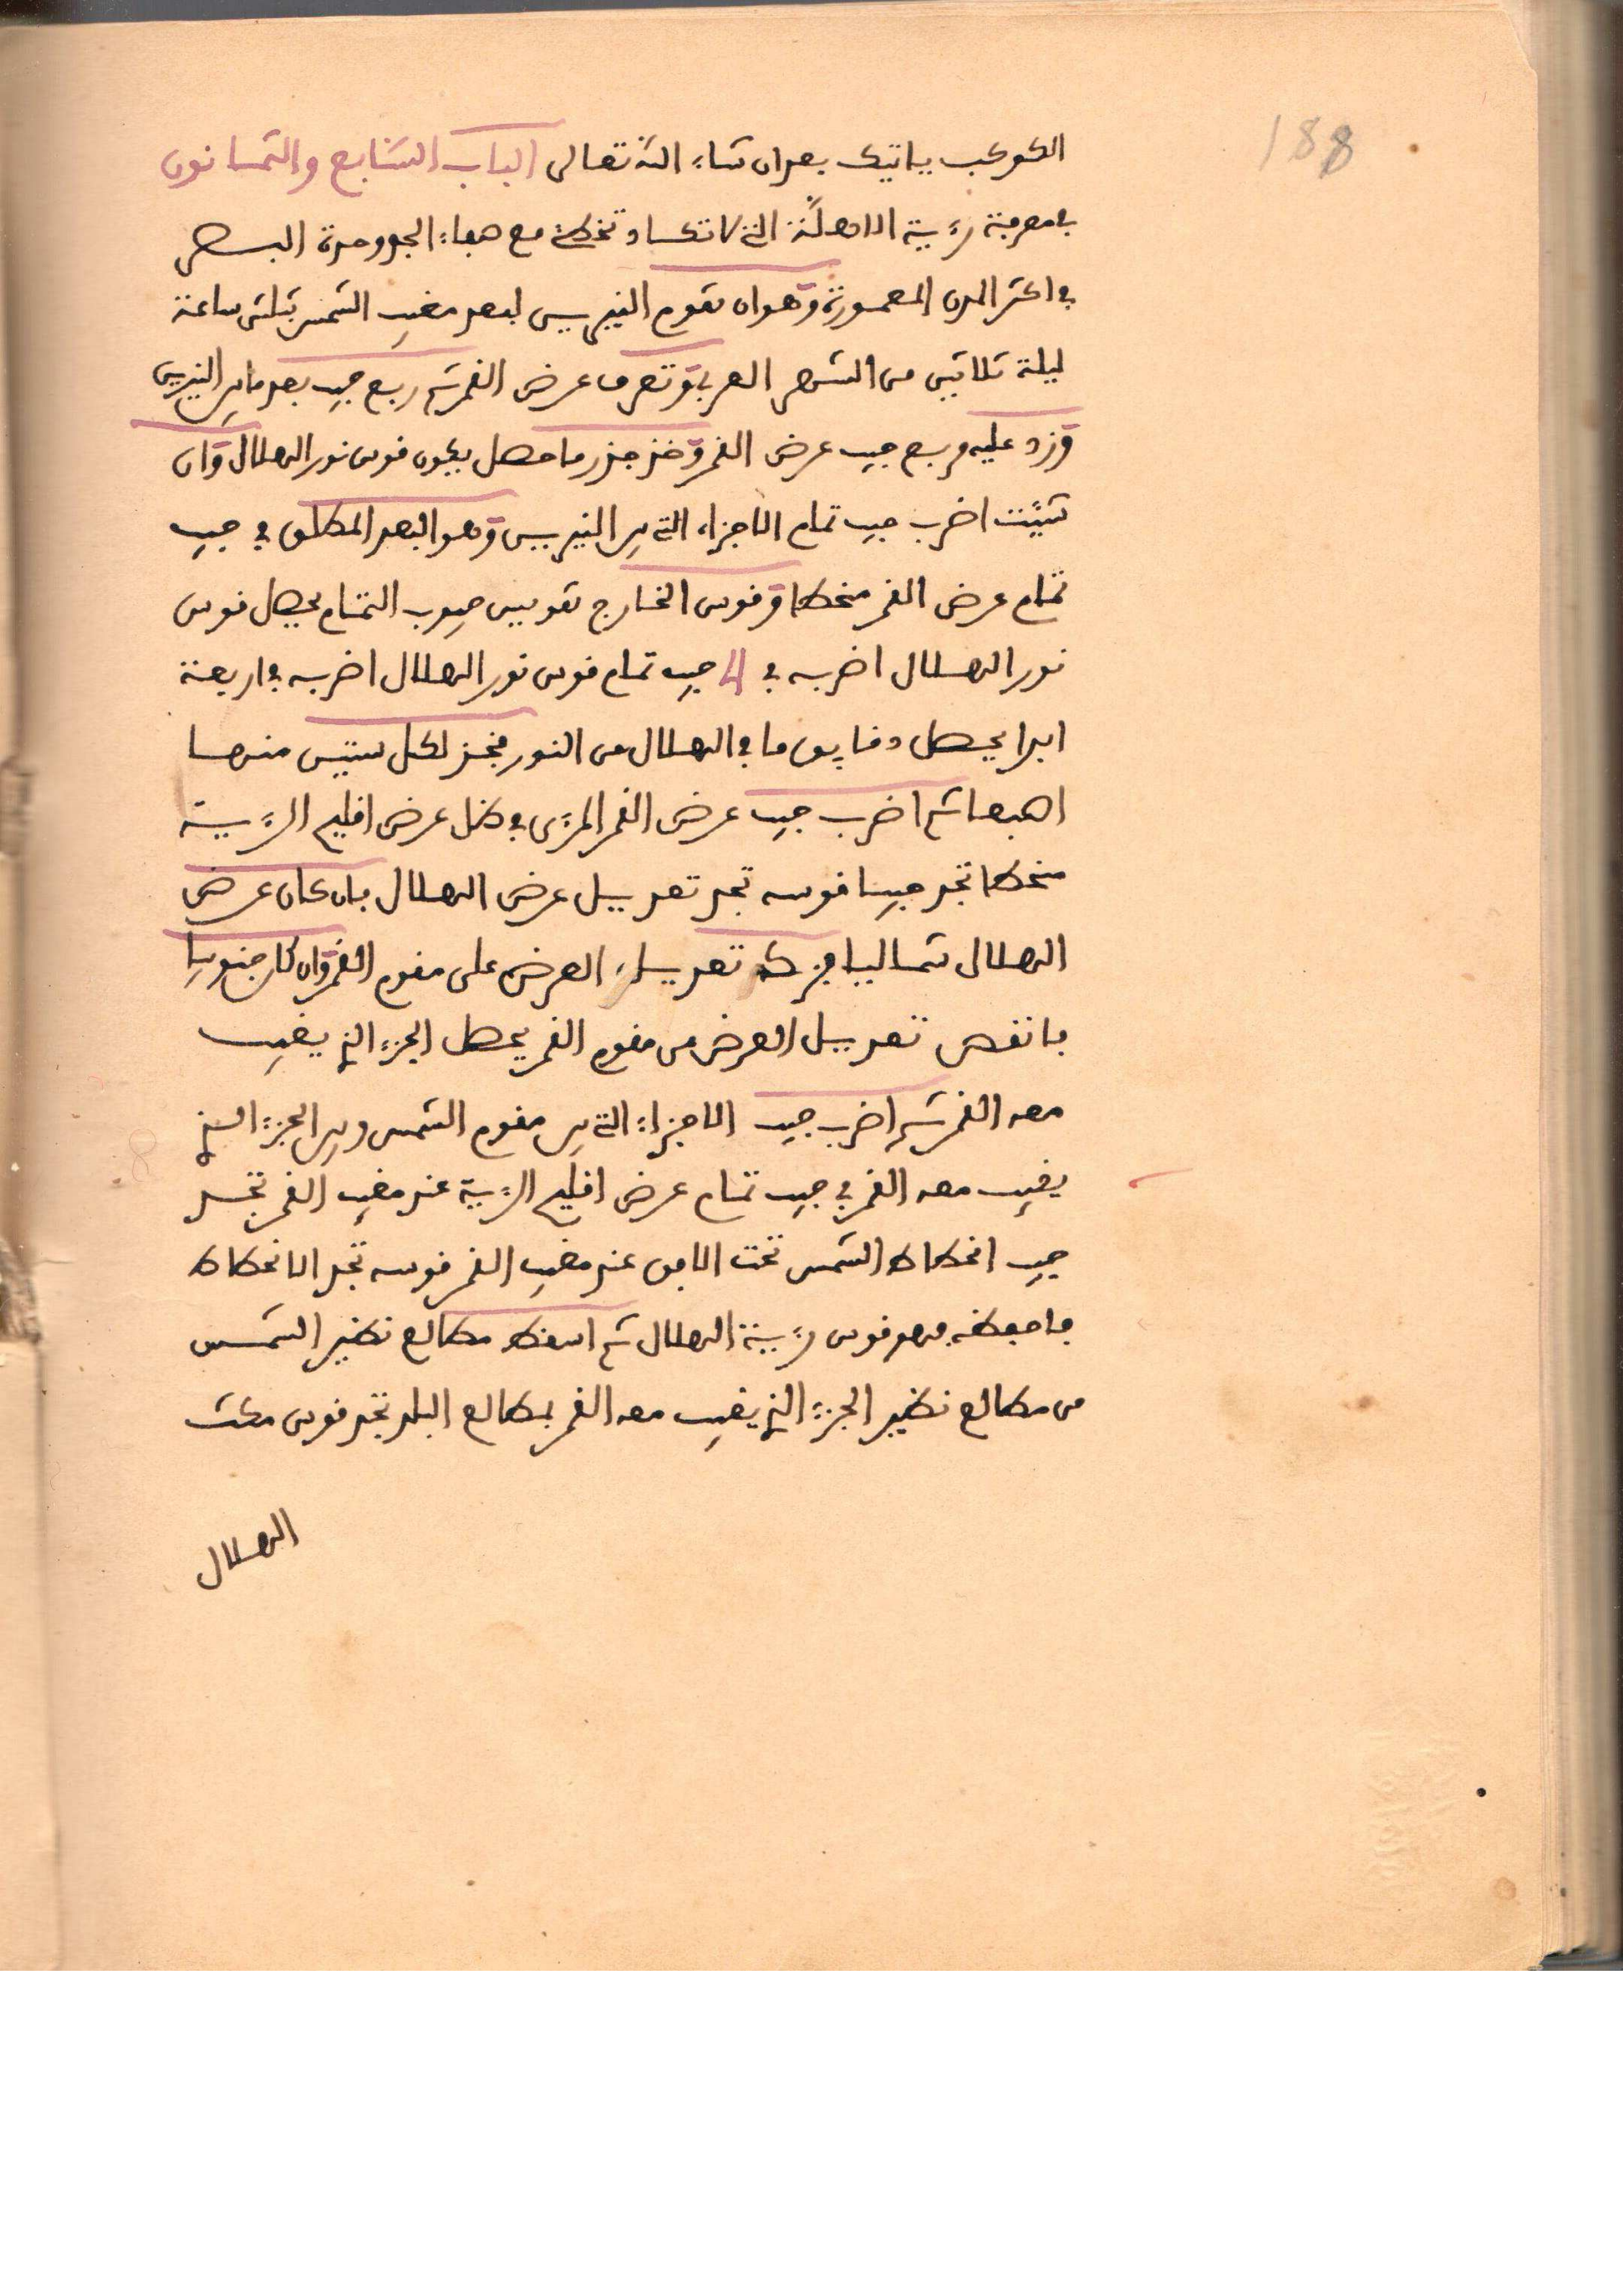 188
الكوكب ياتيك بعد ان شاء الله تعالى الباب السابع والثمانون
في معرفة رؤية الاهلة التي لا تكاد تخطئ مع صفاء الجو وحدة البصر
في اكثر المدن المعمورة وهو ان تقوم النيرين لبعد مغيب الشمس بثلثي ساعة
ليلة ثلاثين من الشهر العربي وتعرف عرض القمر ثم ربع جيب بعد ما بين النيرين
وزد عليه مربع جيب عرض القمر وخذ جذر ما حصل يكون قوس نور الهلال وان
شيت اضرب جيب تمام الاجزاء التي بين النيرين وهو البعد المطلق في جيب
تمام عرض القمر منحطا وقوس الخارج تقويس جيوب التمام يحصل قوس
نور الهلال اضربه في جيب تمام قوس نور الهلال اضربه في اربعة
ابدا يحصل دقايق ما في الهلال من النور فخذ لكل ستين منها
اصبعا ثم اضرب جيب عرض القمر المرءى في ظل عرض اقليم الرؤية
منحطا تجد جيبا قوسه تجد تعديل عرض الهلال فان كان عرض
الهلال شماليا فزد تعديل العرض على مقوم القمر وان كان جنوبيا
فانقص تعديل العرض من مقوم القمر يحصل الجزء الذي يغيب
معه القمر ثم اضرب جيب الاجزاء التي بين مقوم الشمس وبين الجزء الذي
يغيب معه القمر في جيب تمام عرض اقليم الرؤية عند مغيب القمر تجد
جيب انحطاط الشمس تحت الافق عند مغيب القمر قوسه تجد الانحطاط
فاحفظه فهو قوس رؤية الهلال ثم اسقط مطالع نظير الشمس
من مطالع نظير الجزء الذي يغيب معه القمر بمطالع البلد تجد قوس مكث
الهلال